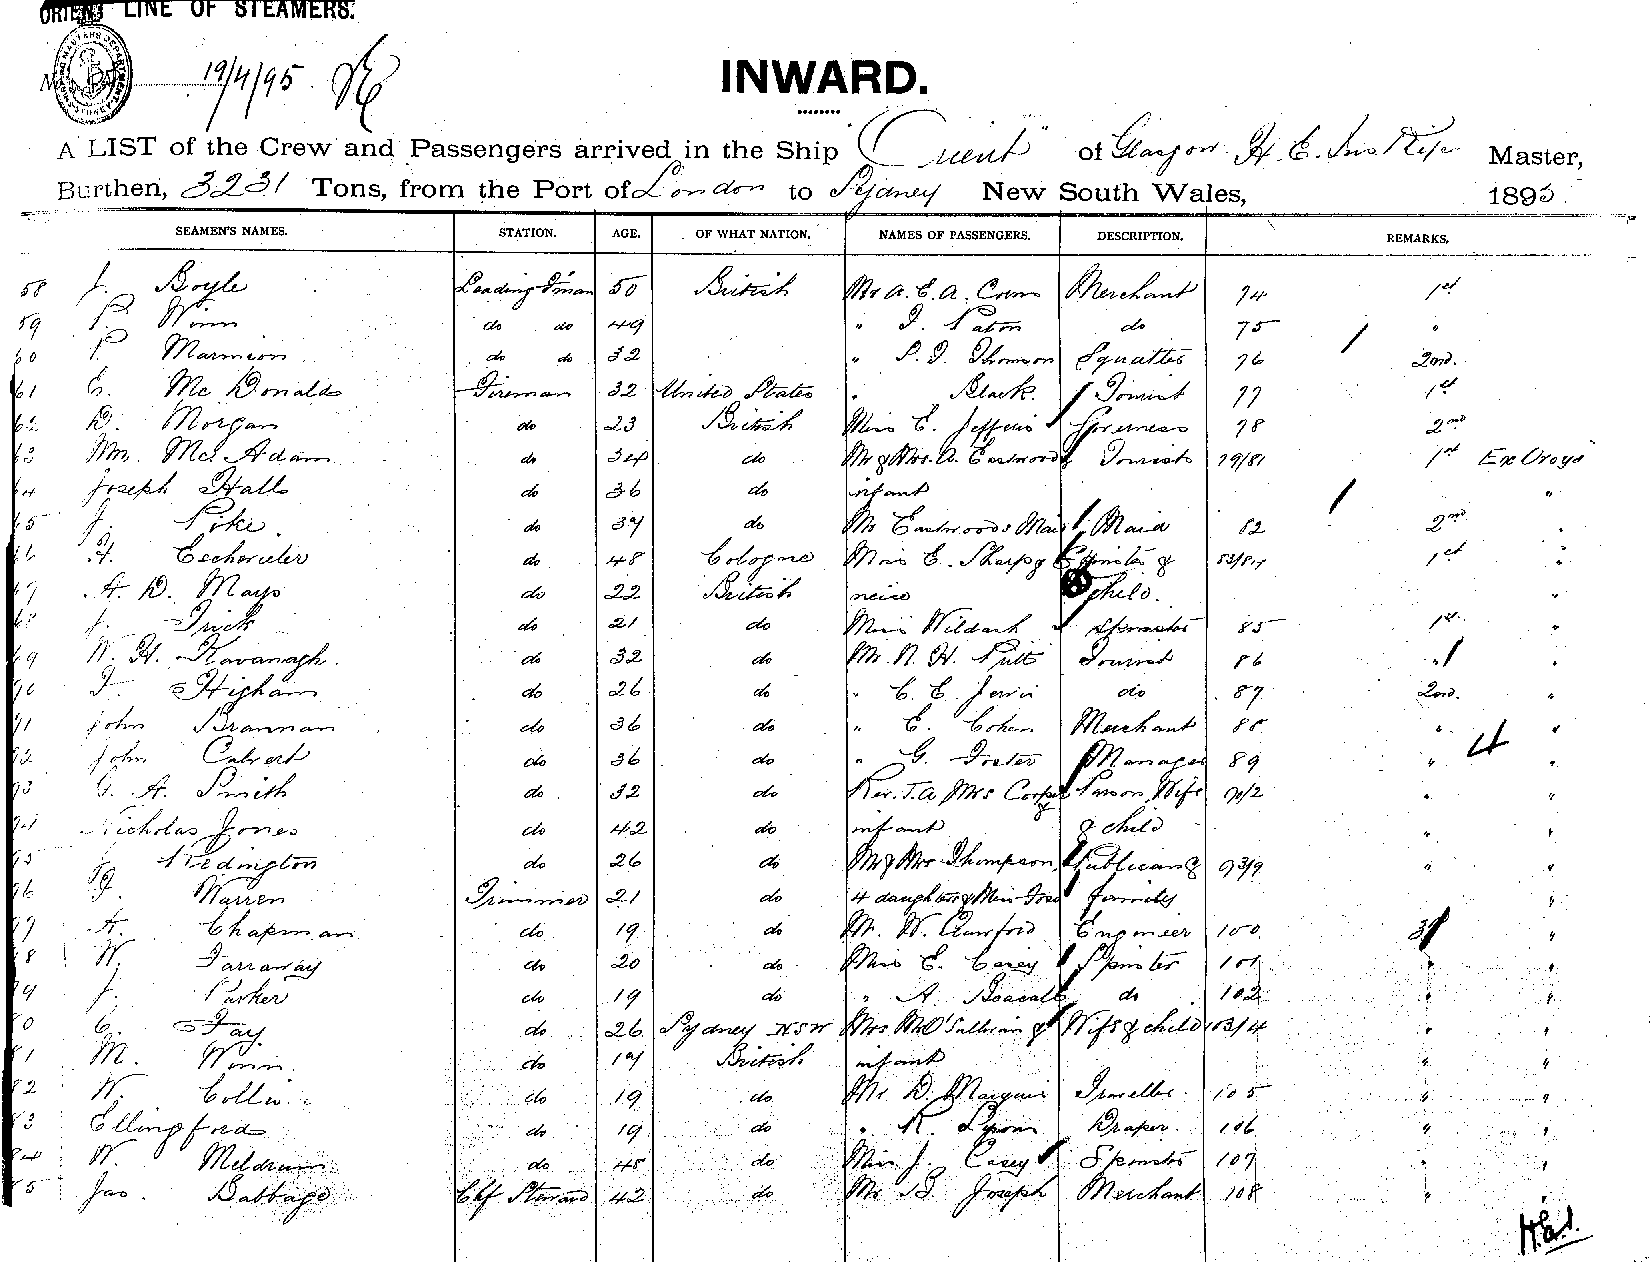 ORIENT LINE OF STEAMERS.
19/4/95
INWARD.
A LIST of the Crew and Passengers arrived in the Ship Orient of Glasgow H. E. Master,
Burthen, 3231 Tons, from the Port of London to Sydney New South Wales, 1895
SEAMEN'S NAMES. STATION. AGE. OF WHAT NATION, NAMES OF PASSENGERS. DESCRIPTION. REMARKS,
58 J. Boyle Leading F'man 50 British Mr A. E. A. Merchant 74 1st
59 P. Winn do do 49 " Paton do 75 "
60 P Marmion do do 32 " Thomson Squatter 76 2nd.
61 Mc Donald Fireman 32 United States " Black. Tourist 77 1st
62 D. Morgan do 23 British Miss E. 78 2nd
63 Wm. McAdam do 34 do Mr & Mrs A. Eastwood & Tourists 79/81 1st Ex
64 Joseph Halls do 36 do infant "
65 J. Pike do 37 do Eastwoods Maid Maid 82 2nd "
66 do 48 Cologne Miss E. Sharp & Spinster & 83/84 1st "
67 A. D. Mays do 22 British neice child. "
68 J. do 21 do Miss Spinster 85 1st "
69 W. H. Kavanagh. do 32 do Mr. N. H. Tourist 86 " "
70 Higham do 26 do " C. E. do 87 2nd. "
71 John Brannan do 36 do " E. Cohen Merchant 88 " "
72 John Calvert do 36 do " G. Foster Manager 89 " 4 "
73 G. A. Smith do 32 do Rev. T. A Mrs Parson, Wife 90/2 " "
74 Nicholas Jones do 42 do infant & child " "
75 J. Redington do 26 do Mr & Mrs Thompson, Publican & 93/9 " "
76 Warren Trimmer 21 do 4 daughters & Miss family "
77 A. Chapman do 19 do Mr. W. Crawford Engineer 100 3rd "
78 W. Farraway do 20 do Miss E. Casey Spinster 101 " "
79 J. Parker do 19 do " A. do 102 " "
80 C. Fay do 26 Sydney NSW Mrs M O'Sullivan & Wife & child 103/4 " "
81 M. Winn do 19 British infant "
82 W. Collin do 19 do Mr D. Jeweller 105 " "
83 Ellingford do 19 do " R. Lyons Draper. 106 " "
84 W. Meldrum do 45 do Miss J. Casey Spinster 107 " "
85 Jas. Babbage Chf Steward 42 do Mr B. Joseph Merchant 108 "